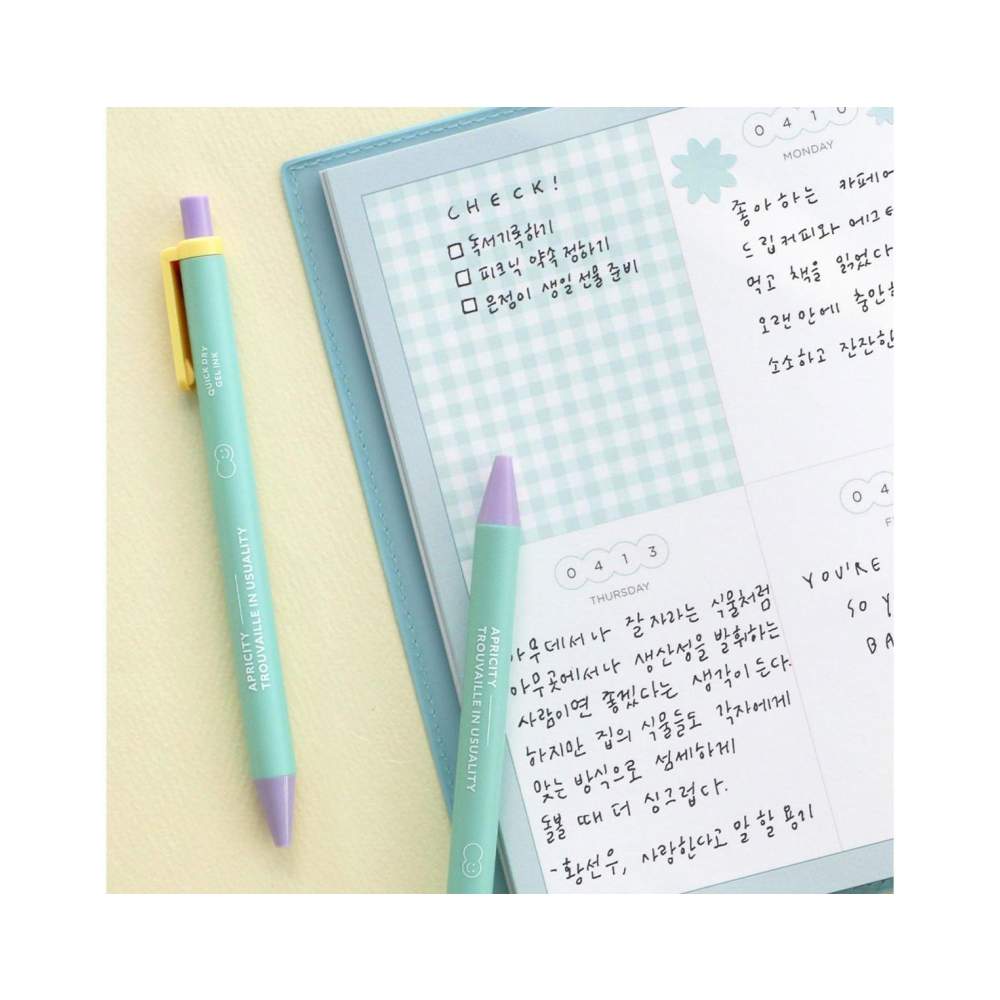 CHECK!
□ 독서기록하기
□ 피크닉 약속 정하기
□ 은정이 생일 선물 준비
0410
MONDAY
좋아하는 카페에
드립커피와
먹고 책을 읽었다
오랜만에
소소하고 잔잔한
0413
THURSDAY
아무데서나 잘 자라는 식물처럼
아무곳에서나 생산성을 발휘하는
사람이면 좋겠다는 생각이 든다.
하지만 집의 식물들도 각자에게
맞는 방식으로 섬세하게
돌볼 때 더 싱그럽다.
-황선우, 사랑한다고 말할 용기
04
YOU'RE
SO
QUICK DRY
GEL INK
APRICITY
TROUVAILLE IN USUALITY
APRICITY
TROUVAILLE IN USUALITY